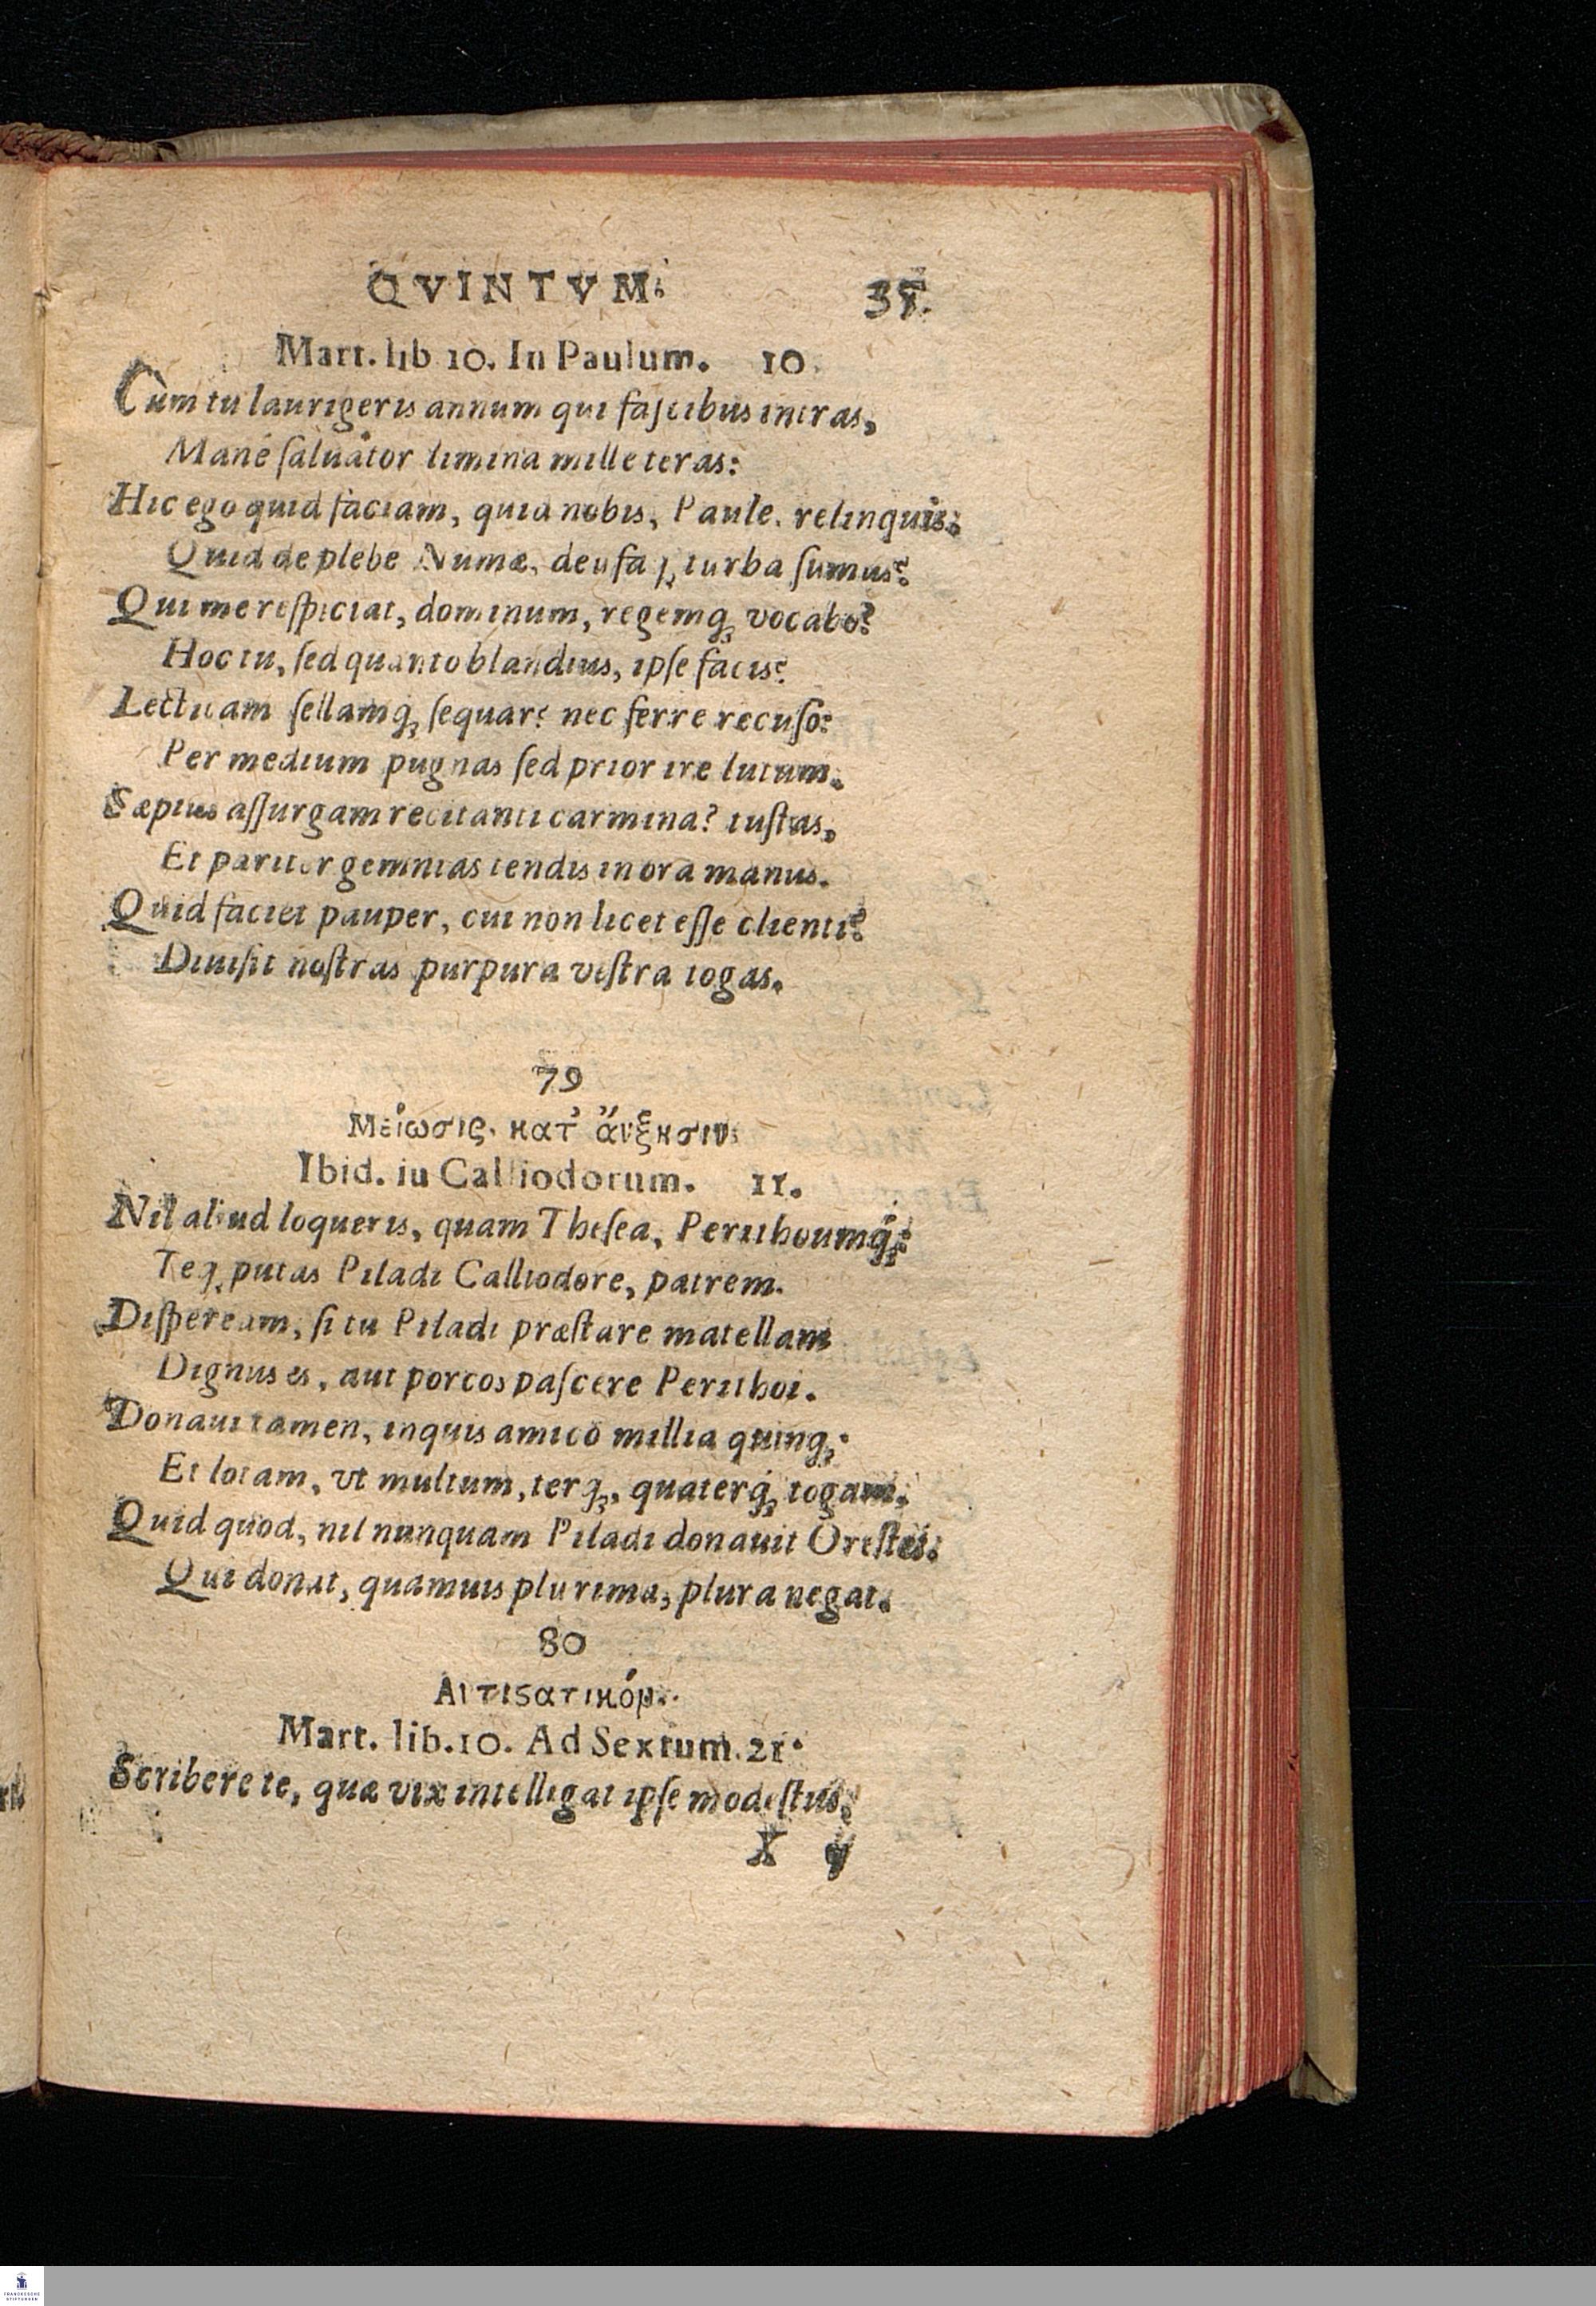 QVINTVM. 35.
Mart. lib 10. In Paulum. 10.
Cùm tu laurigeris annum qui faſcibus intras,
Manè ſaluâtor limina mille teras:
Hic ego quid faciam, quid nobis, Paule, relinquis:
Quid de plebe Numæ, denſaq́; turba ſumus?
Qui me reſpiciat, dominum, regemq́; vocabo?
Hoc tu, ſed quanto blandius, ipſe facis?
Lecticam ſellamq́; ſequar? nec ferre recuſo:
Per medium pugnas ſed prior ire lutum.
Sæpius aſſurgam recitanti carmina? tu ſtas,
Et pariter geminas tendis in ora manus.
Quid faciet pauper, cui non licet eſſe clienti?
Diuiſit noſtras purpura veſtra togas.
79
Μείωσις. κατ᾽ ἄυξησιν.
Ibid. iu Calliodorum. 11.
Nil aliud loqueris, quam Theſea, Perithoumq́;:
Teq́; putas Piladi Calliodore, patrem.
Diſpeream, ſi tu Piladi præſtare matellam
Dignus es, aut porcos paſcere Perithoi.
Donaui tamen, inquis amico millia quinq́;
Et lotam, vt multum, terq́;, quaterq́; togam.
Quid quod, nil nunquam Piladi donauit Oreſtes:
Qui donat, quamuis plurima, plura negat.
80
Mart. lib. 10. Ad Sextum. 21.
Scribere te, quæ vix intelligat ipſe modeſtus,
X
FRANCKESCHE
STIFTUNGEN